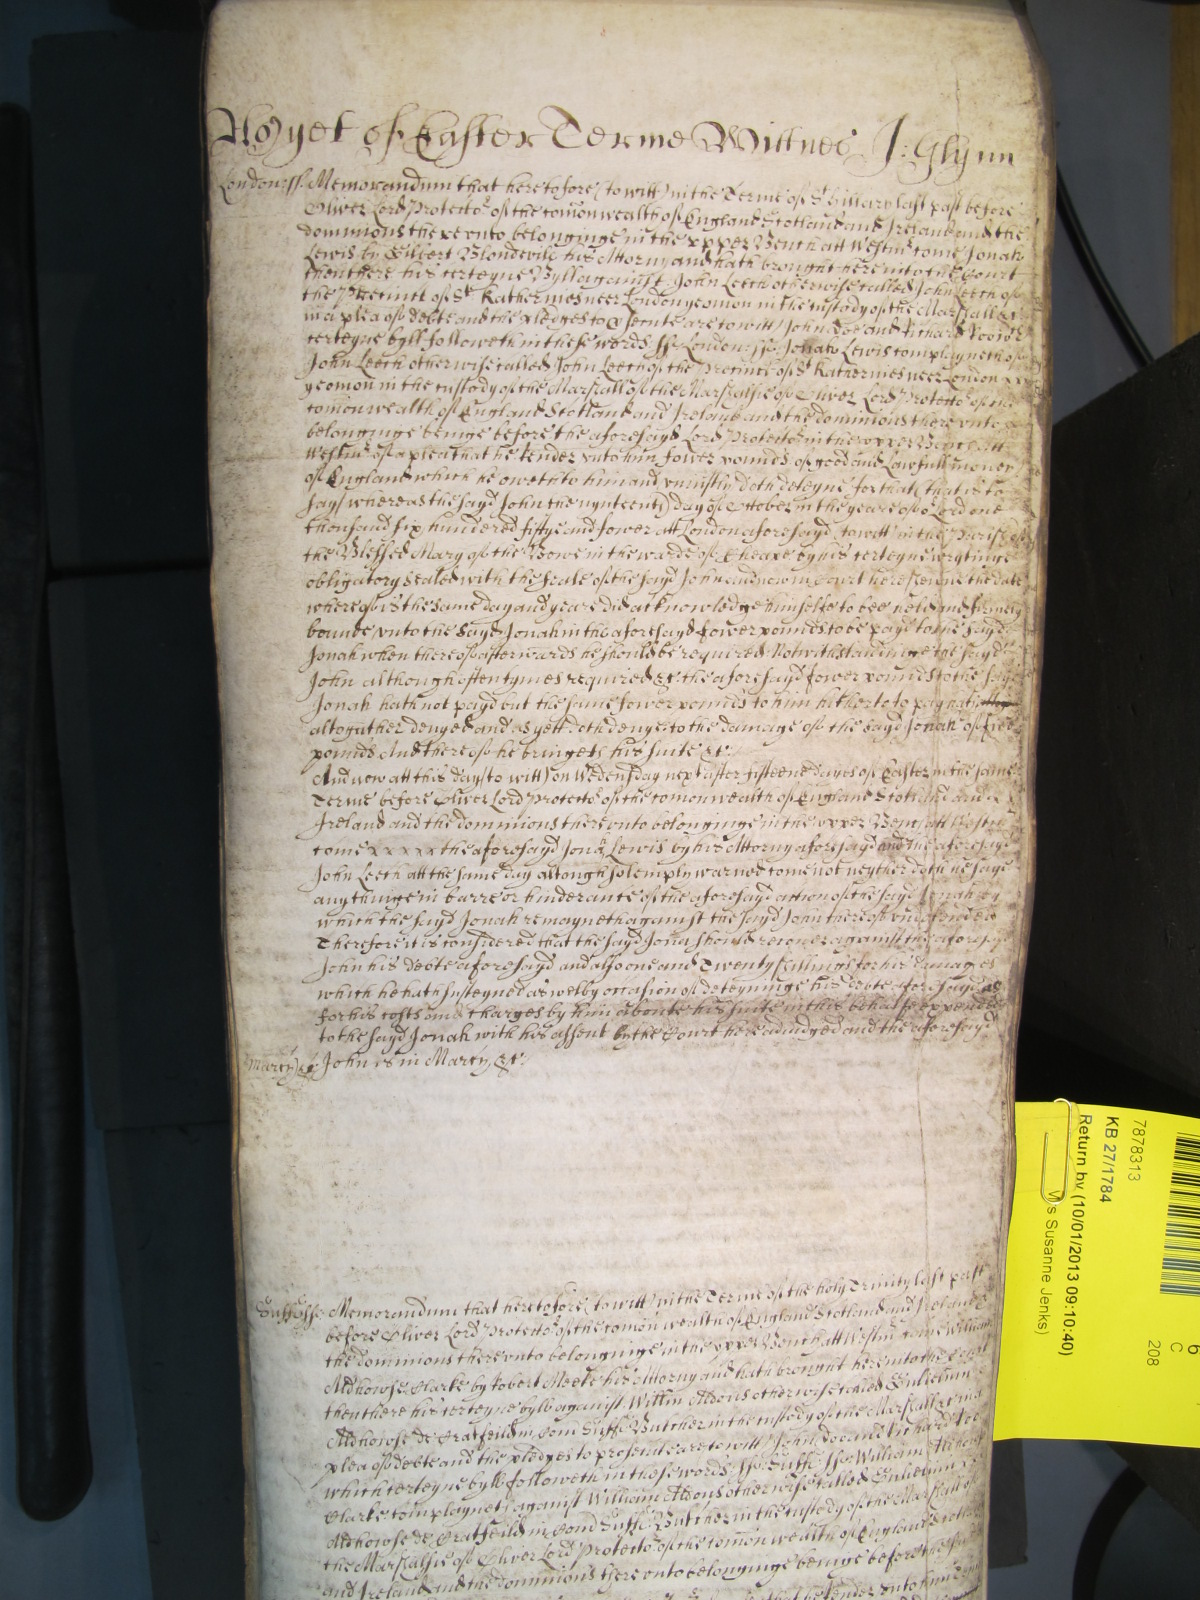 As yet of Easter Terme Wittnes J: Glynn
London ss Memorandum that heretofore (to witt) in the Terme of St Hillary last past before
Oliver Lord Protector of the comonwealth of England Scotland and Ireland and the
dominions therevnto belonginge in the vpper Bench att Westmr come Jonah
Lewis by Gilbert Blondevile his Attorny and hath brought here into the Court
then there his certeyne Byll against John Leech otherwise called John Leech of
the Precinct of St Katherines neer London yeoman in the custody of the Marshall &c
in a plea of debte and the pledges to prosecute are to witt John Doe and Richard Roo which
certeyne byll followeth in these words ss London ss Jonah Lewis complayneth of
John Leech otherwise called John Leech of the Precinct of St Katherines neer London
yeoman in the custody of the Marshall of the Marshalsie of Oliver Lord Protector of the
comonwealth of England Scotland and Ireland and the dominions therevnto
belonginge beinge before the aforesayd Lord Protector in the vpper Bench att
Westmr of a plea that he render vnto him fower pounds of good and lawfull money
of England which he oweth to him and vniustly doth deteyne for that (that is to
say) whereas the sayd John the nynteenth day of October in the yeare of or Lord one
thousand six hundered fiftye and fower att London aforesayd to witt in the Parish of
the Blessed Mary of the Bowe in the warde of Cheape by his certeyne wrytinge
obligatory sealed with the seale of the sayd John and now in Court here shewne the date
whereof is the same day and yeare did acknowledge himselfe to bee held and firmely
bounde vnto the sayd Jonah in the aforesayd fower pounds to be payd to the sayd
Jonah when thereof afterwards he should be required Notwithstandinge the sayd
John although oftentymes required &c the aforesayd fower pounds to the sayd
Jonah hath not payd but the same fower pounds to him hitherto to pay hath
altogather denyed and as yett doth denye to the damage of the sayd Jonah of
pounds And thereof he bringeth his suite &c
And now att this day (to witt) on Wedensday next after fifteene dayes of Easter in the same
Terme before Oliver Lord Protector of the comonwealth of England Scotland and
Ireland and the dominions therevnto belonginge in the vpper Bench att Westmr
come the aforesayd Jonah Lewis by his Attorny aforesayd and the aforesayd
John Leech att the same day although solemply warned come not neyther doth he saye
any thinge in barre or hinderance of the aforesayd action of the sayd Jonah by
which the sayd Jonah remayneth against the sayd John thereof vndefended
Therefore it is considered that the sayd Jonah should recover against the aforesayd
John his debte aforesayd and also one and Twenty shillings for his damages
which he hath susteyned as well by occasion of deteyninge his debte aforesayd as
for his costs and charges by him aboute his suite in this behalfe expended
to the sayd Jonah with his assent by the Court here adiudged and the aforesayd
Marcy &c John is in Marcy &c
Suff ss Memorandum that heretofore (to witt) in the Terme of the holy Trinity last past
before Oliver Lord Protector of the comon wealth of England Scotland and Ireland &
the dominions therevnto belonginge in the vpper Bench att Westmr came William
Aldhowse Clarke by Robert Meeke his Attorny and hath brought here into the Court
then there his certeyne byll against Willm Aldous otherwise called Gulielmum
Aldhowse de Cratfeild in Com Suff Butcher in the custody of the Marshall &c in a
plea of debte and the pledges to prosecute are to witt John Doe and Richard Roe
which certeyne byll followeth in those words ss Suff ss William Aldhowse
Clarke complayneth against William Aldous otherwise called Gulielmum
Aldhowse de Cratfeild in Com Suff Butcher in the custody of the Marshall of
the Marshalsie of Oliver Lord Protector of the comon wealth of England Scotland
and Ireland and the dominions therevnto belonginge beinge before the
that he render vnto him
7878313
KB 27/1784
Return by (10/01/2013 09:10:40)
Susanne Jenks)
6
C
208